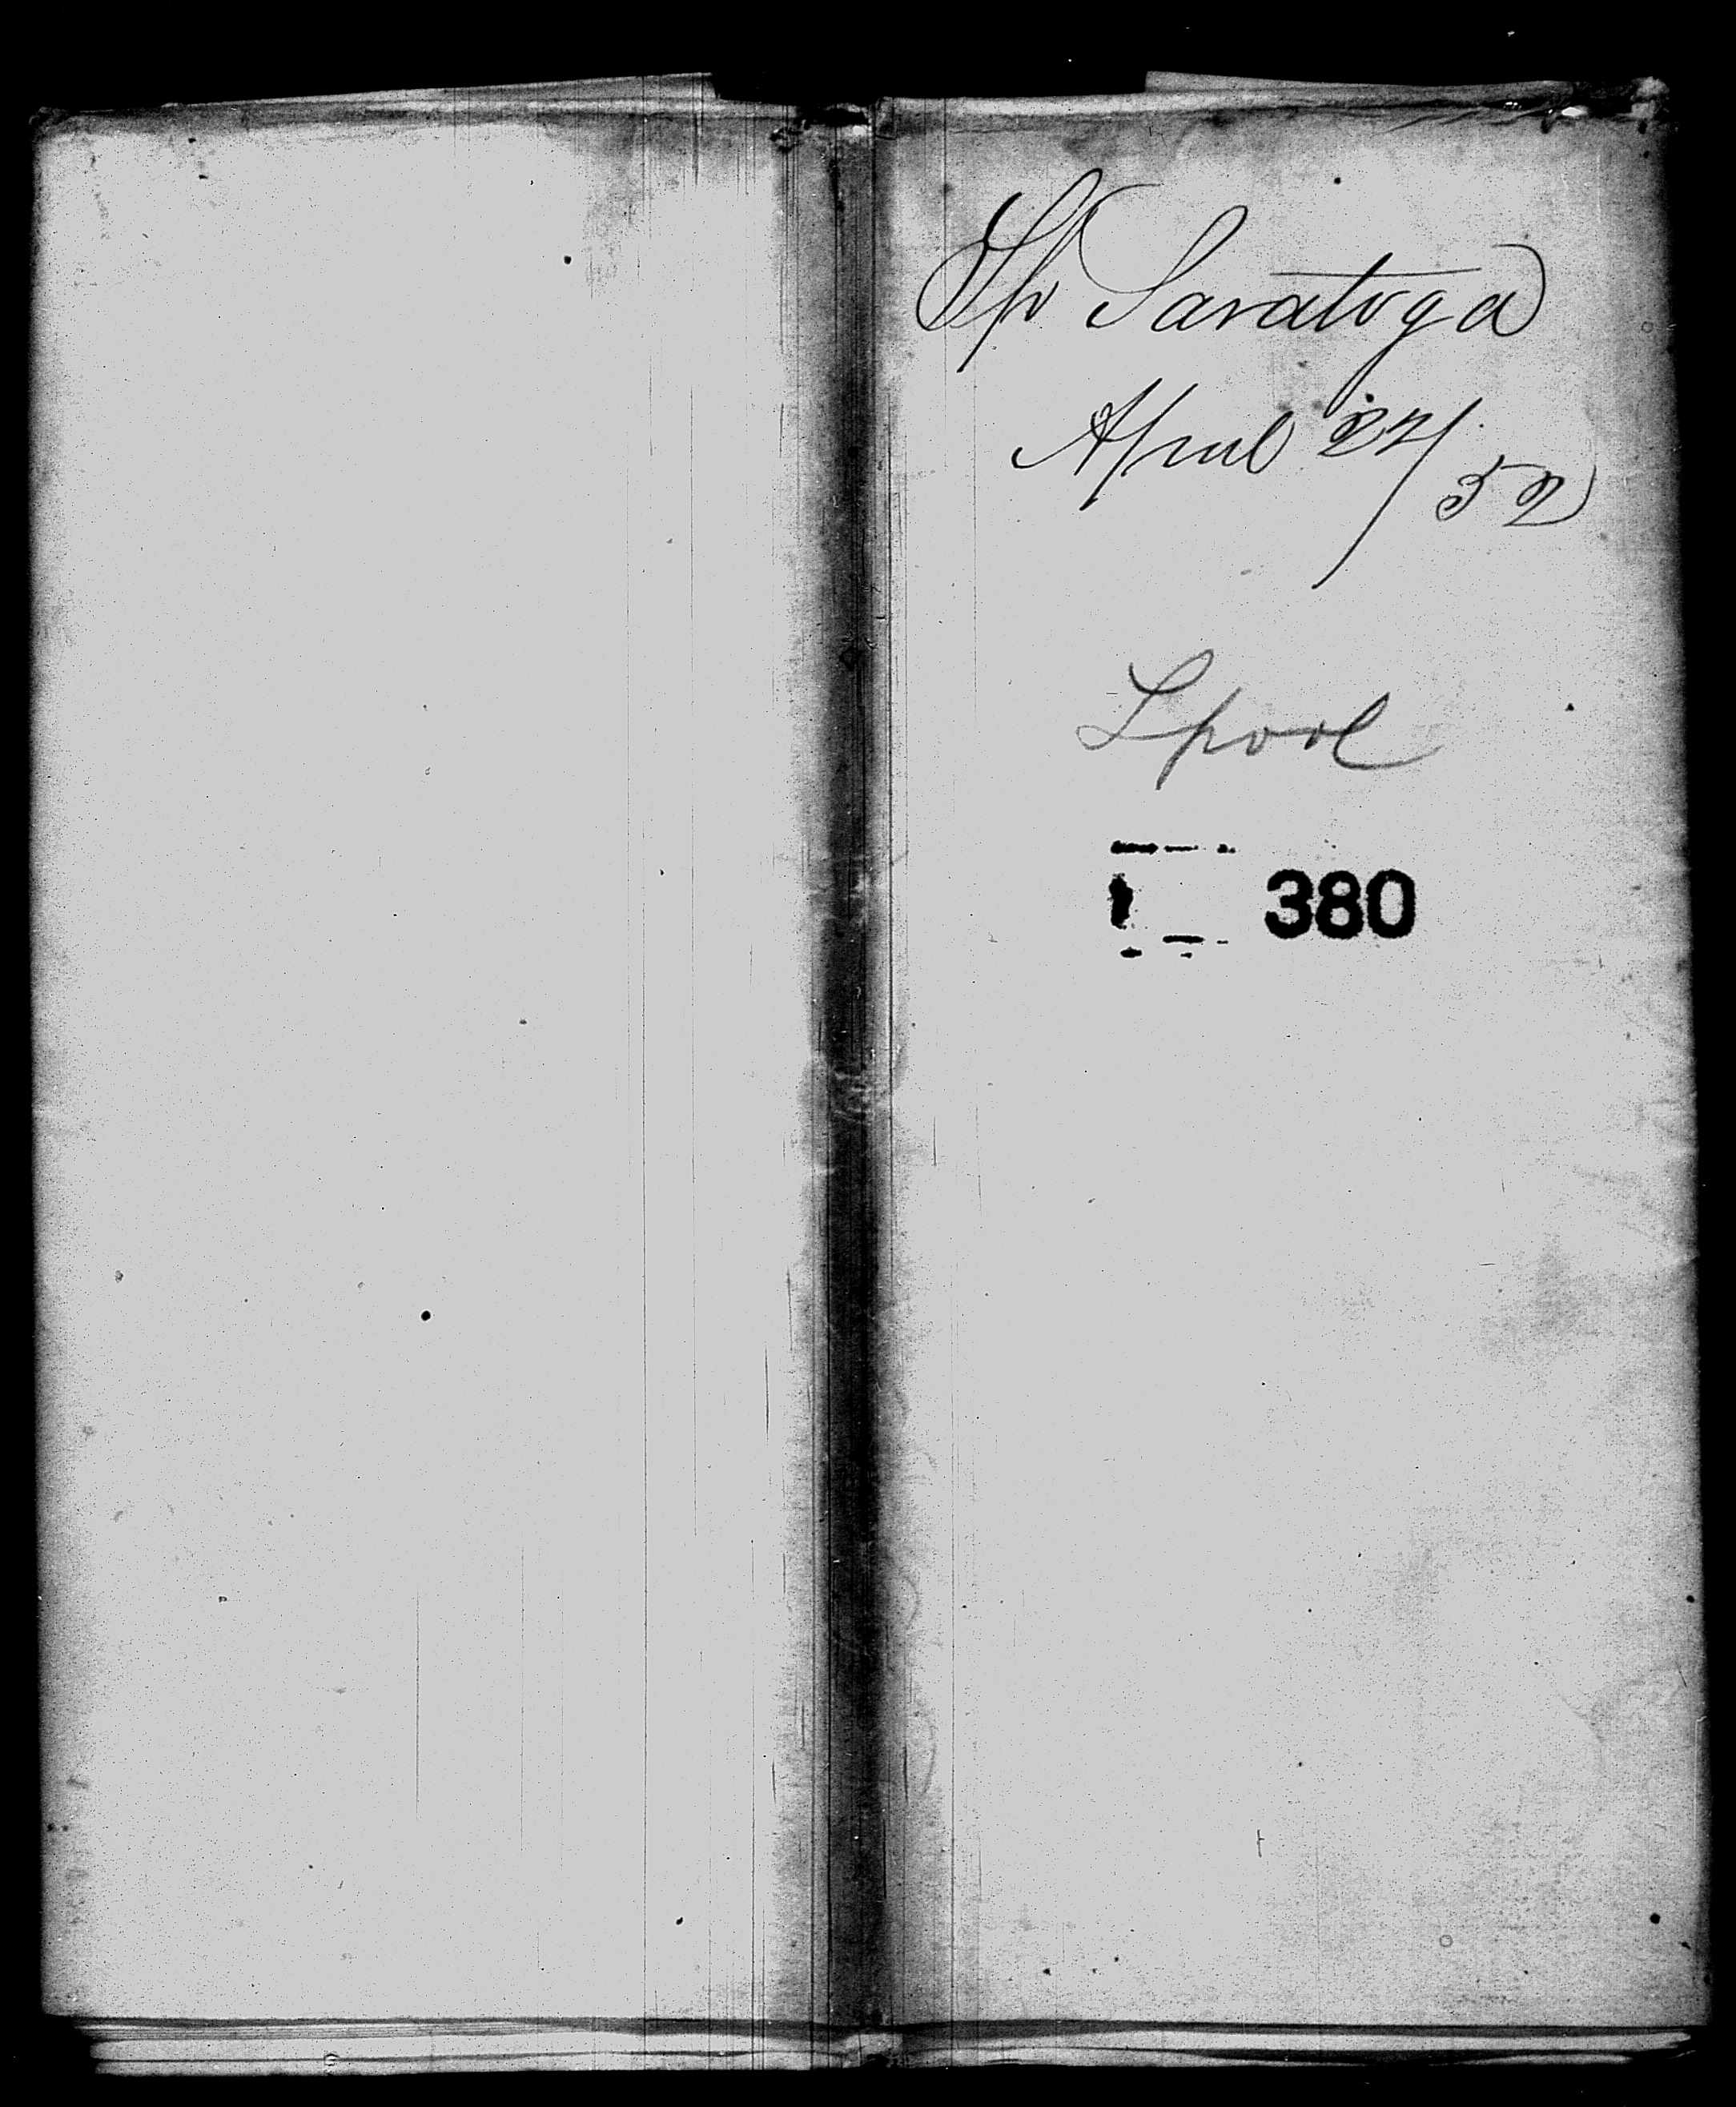 Sp Saratoga
April 27/52
Lpool
380